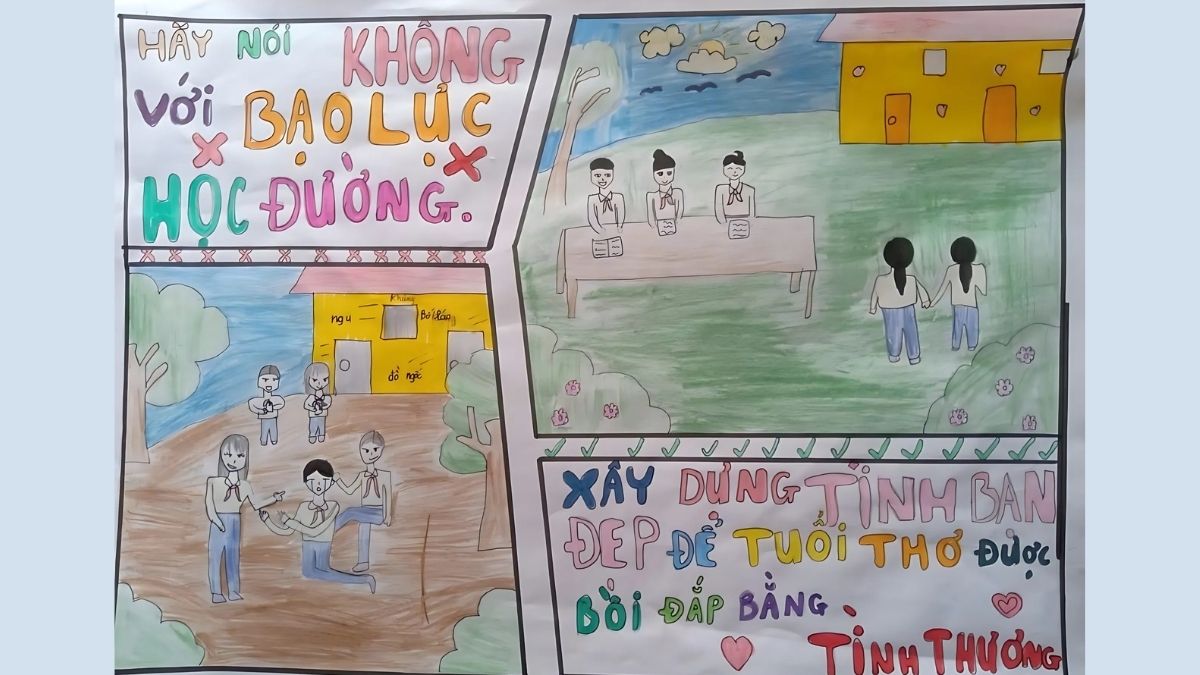 HÃY NÓI KHÔNG
VỚI BẠO LỰC
HỌC ĐƯỜNG.
ngu
đồ ngốc
XÂY DỰNG TÌNH BẠN
ĐẸP ĐỂ TUỔI THƠ ĐƯỢC
BỒI ĐẮP BẰNG
TÌNH THƯƠNG